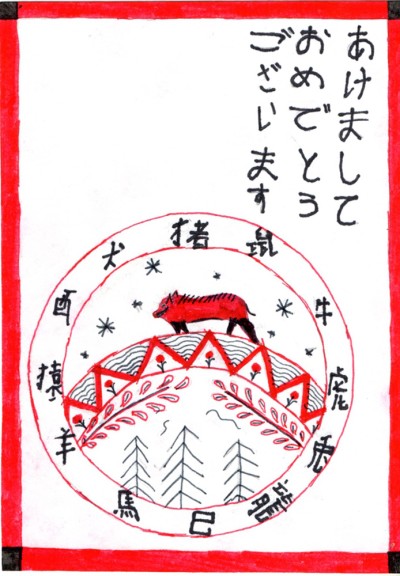 あけまして
おめでとう
ございます
猪
鼠
牛
虎
龍
巳
馬
羊
猿
酉
犬